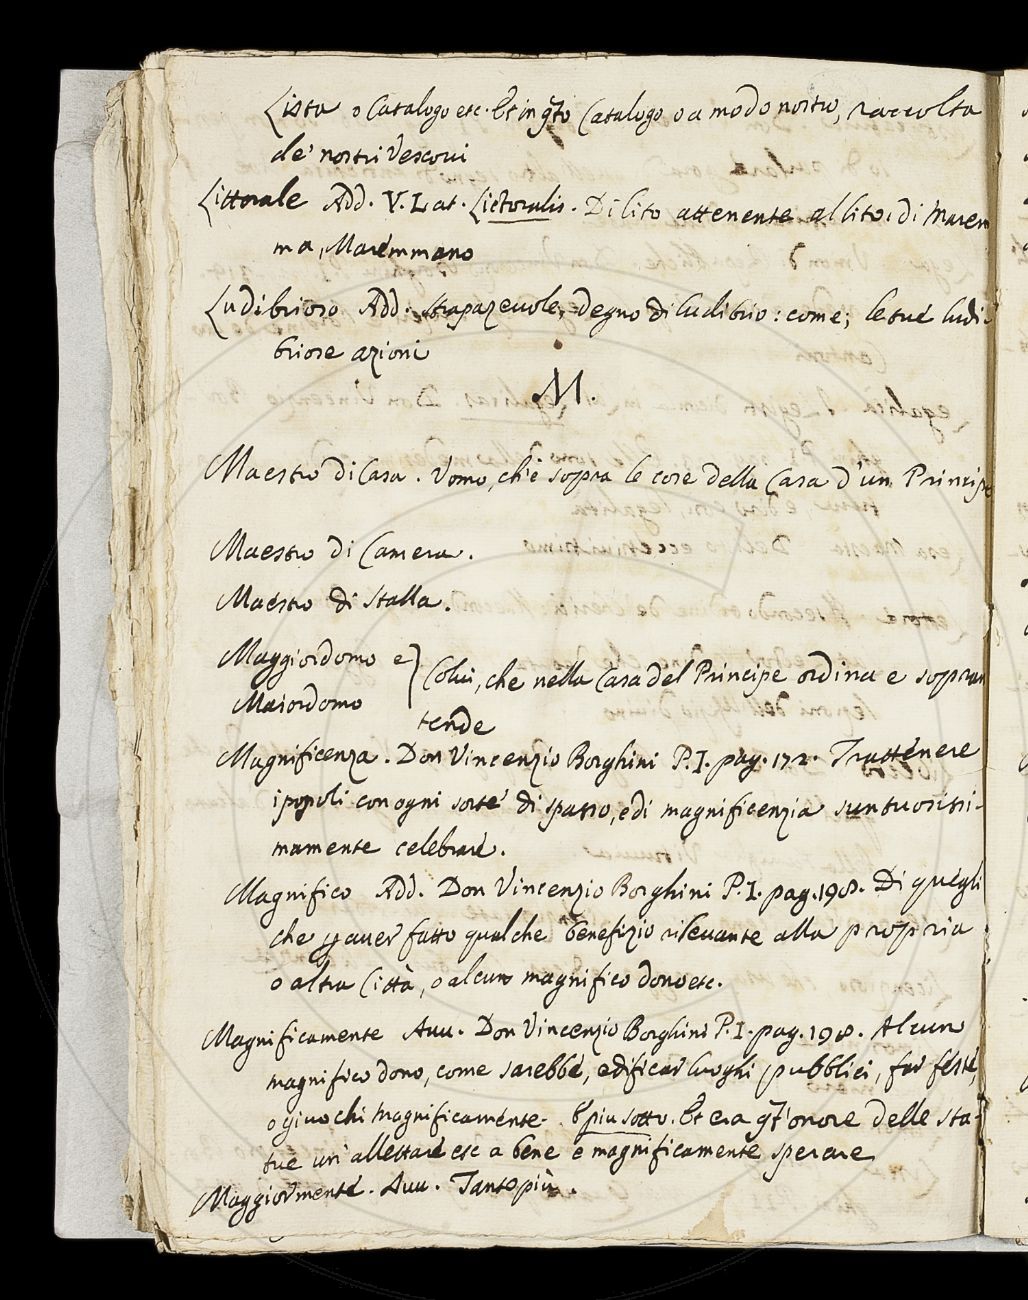 Lista o Catalogo etc. Et in q̃to Catalogo o a modo nostro, raccolta
de' nostri Vescovi
Littorale Add. V. Lat. Lictoralis. Di lito attenente al lito, di Marem
ma, Maremmano
Ludibrioso Add. strapazevole, degno di ludibrio: come; le tue ludi-
briose azioni
M.
Maestro di Casa. Vomo, ch'è sopra le cose della Casa d'un Principe
Maestro di Camera.
Maestro di stalla.
Maggiordomo e
Maiordomo
Colui, che nella Casa del Principe ordina e sopran
tende
Magnificenza. Don Vincenzio Borghini P. I. pag. 172. Trattenere
i popoli con ogni sorte di spasso, e di magnificenzia suntuosissi-
mamente celebrare.
Magnifico Add. Don Vincenzio Borghini P. I. pag. 198. Di quegli
che p aver fatto qualche benefizio rilevante alla propria
o altra Città, o alcun magnifico dono etc.
Magnificamente Avv. Don Vincenzio Borghini P. I. pag. 198. Alcun
magnifico dono, come sarebbe, edificar luoghi pubblici, far feste,
o givochi magnificamente. E più sotto. Et era q̃t'onore delle sta-
tue un' allettare etc a bene e magnificamente sperare
Maggiormente. Avv. Tanto più.